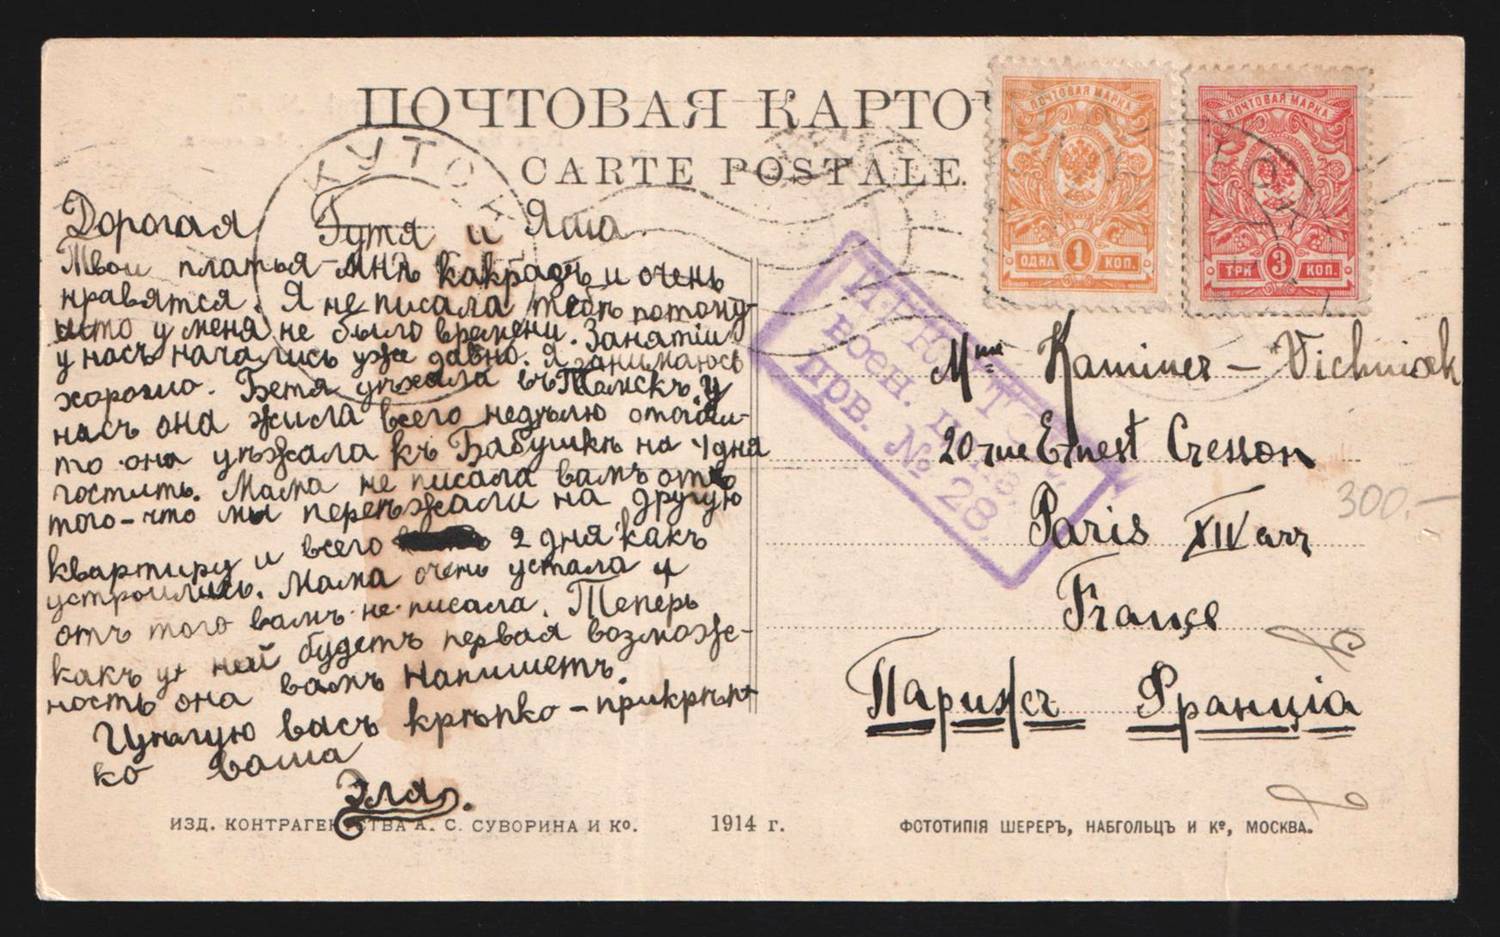 ПОЧТОВАЯ КАРТОЧ
CARTE POSTALE
ПОЧТОВАЯ МАРКА
ОДНА 1 КОП.
ПОЧТОВАЯ МАРКА
ТРИ 3 КОП.
Дорогая Гутя и Яша
Твои платья мнѣ какразъ и очень
нравятся. Я не писала тебѣ потому
что у меня не было времени. Занятiи
у насъ начались уже давно. Я занимаюсь
хорошо. Бетя уѣхала въ Томскъ, у
насъ она жила всего недѣлю
то она уѣжала къ Бабушкѣ на 4 дня
гостить. Мама не писала вамъ отъ
того-что мы переѣжали на другую
квартиру и всего 2 дня какъ
устроились. Мама очень устала и
отъ того вамъ не писала. Теперь
какъ у ней будетъ первая возмож-
ность она вамъ напишетъ.
Цѣлую васъ крѣпко-прикрѣпѣ
ко ваша
Эля.
ИРКУТСК
воен.
ПРВ. № 28.
Mme Kaminer - Vichniak
20 rue Ernest Cresson
Paris XIV arr
France
Парижъ Францiя
300.-
ИЗД. КОНТРАГЕНТСТВА А. С. СУВОРИНА И Ко.
1914 г.
ФОТОТИПIЯ ШЕРЕРЪ, НАБГОЛЬЦЪ И Ко, МОСКВА.